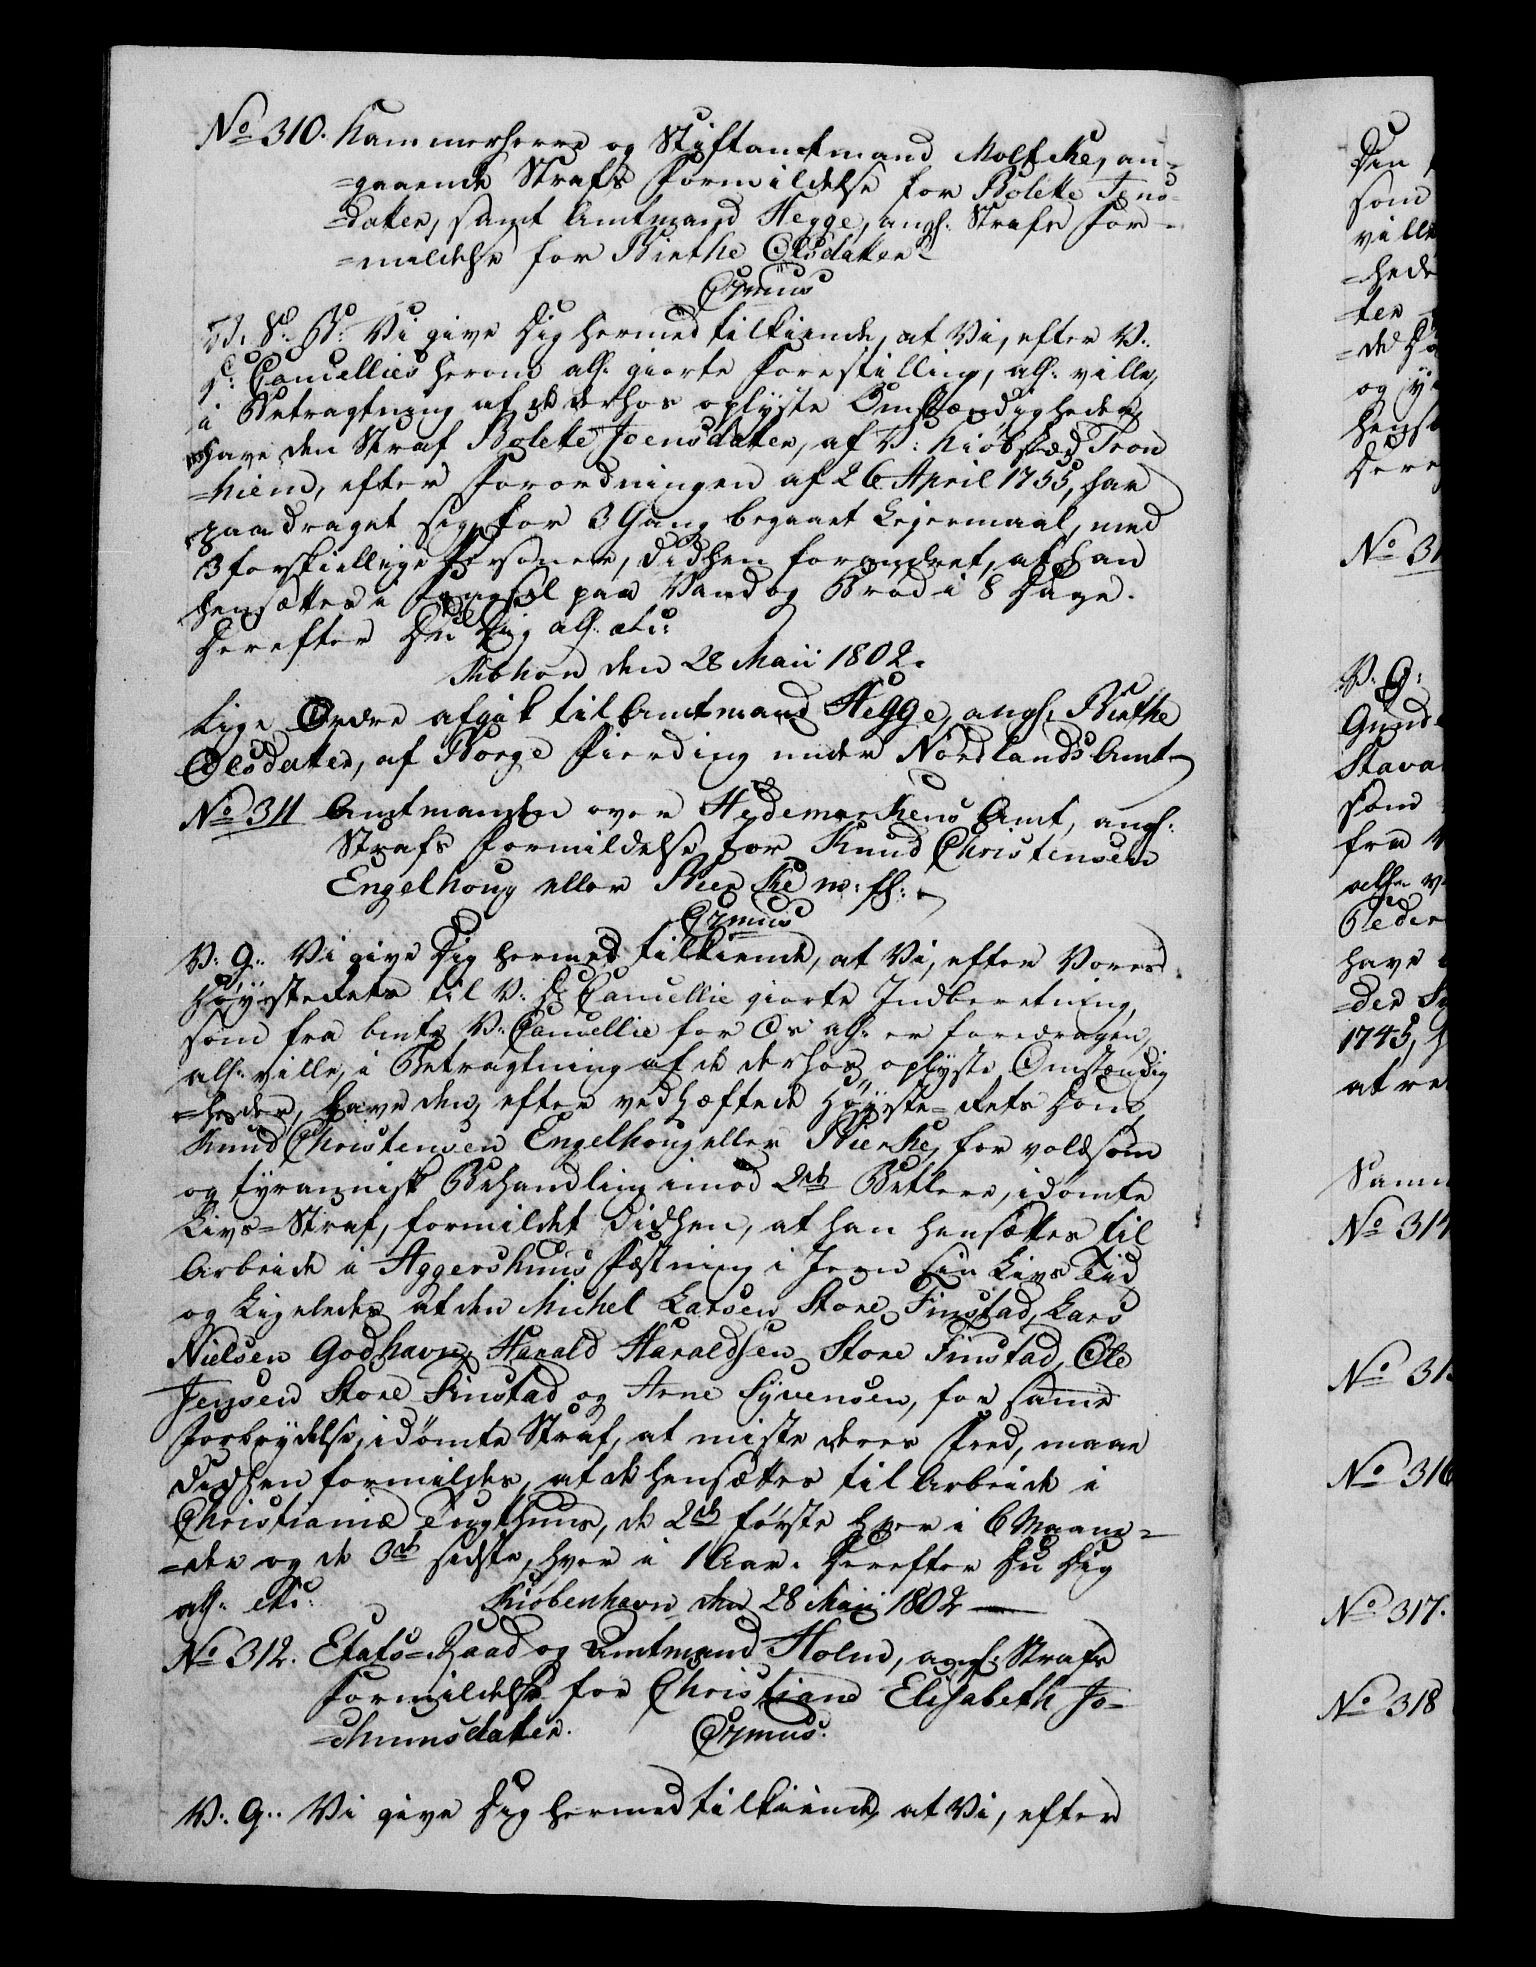 No 310. Kammerherre og Stiftamtmand Moltke, an-
=gaaende Strafs Formildelse for Bolette Jens-
=datter, samt Amtmand Hegge, angl. Strafs For-
=mildelse for Birthe Olsdatter
C7mus
V. G: Vi give Dig hermed tilkiende, at Vi, efter V.
D: Cancellies herom all: giorte Forestilling, all: ville,
i Betragtning af de derhos oplyste Omstændigheder,
have den Straf Bolette Joensdatter, af V: Kiøbstæd Tron
=hiem, efter Forordningen af 26 April 1755, har
paadraget sig for 3 Gang begaaet Lejermaal, med
3 forskiellige Personer, didhen forandret, at hun
hensættes i Fængsel paa Vand og Brød i 8 Dage.
Herefter Du Dig all: etc:
Kbhvn den 28 Maii 1802.
Lige Ordre afgik til Amtmand Hegge, angl. Birthe
Olsdatter, af Borge Fierding under Nordlands Amt
No 311 Amtmanden over Hedemarkens Amt, angl:
Strafs Formildelse for Knud Christensen
Engelhoug eller Bierke m: fl:
C7mus
V. G: Vi give Dig hermed tilkiende, at Vi, efter Vores
Høyesterets til V: D: Cancellie giorte Indberetning,
som fra bemte V. Cancellie for Os all: er foredragen,
all: ville, i Betragtning af de derhos oplyste Omstændig
=heder, have den, efter vedhæftede Høyeste=Rets Dom,
Knud Christensen Engelhoug eller Bierke, for voldsom
og tyrannisk Behandling imod 2de Betlere, idømte
Livs=Straf, formildet didhen, at han hensættes til
Arbeide i Aggershuus Fæstning i Jern sin Livs Tid
og Ligeledes at den Michel Larsen Store Finstad, Lars
Nielsen Godhavn, Harald Haraldsen Store Finstad, Ole
Jensen Store Finstad og Arne Syvensen, for samme
Forbrydelse, idømte Straf, at miste deres Fred, maae
didhen formildes, at de hensættes til Arbeide i
Christiania Tugthuus, de 2de første hver i 6 Maane=
=der og de 3de sidste, hver i 1 Aar. Herefter Du Dig
all: etc: Kiøbenhavn den 28 Maii 1802
No 312. Etats=Raad og Amtmand Holm, angl: Strafs
Formildelse for Christiane Elisabeth Jo-
=chumsdatter. C7mus.
V. G: Vi give Dig hermed tilkiende, at Vi, efter
Den
som
ville
=hede
ter
=de
og
Hens
Here
No 31
V. G:
Gund
Stava
som
fra
all:
Peder
have
=der
1745,
at
Samm
No 314
No 315
No 316
No 317.
No 318